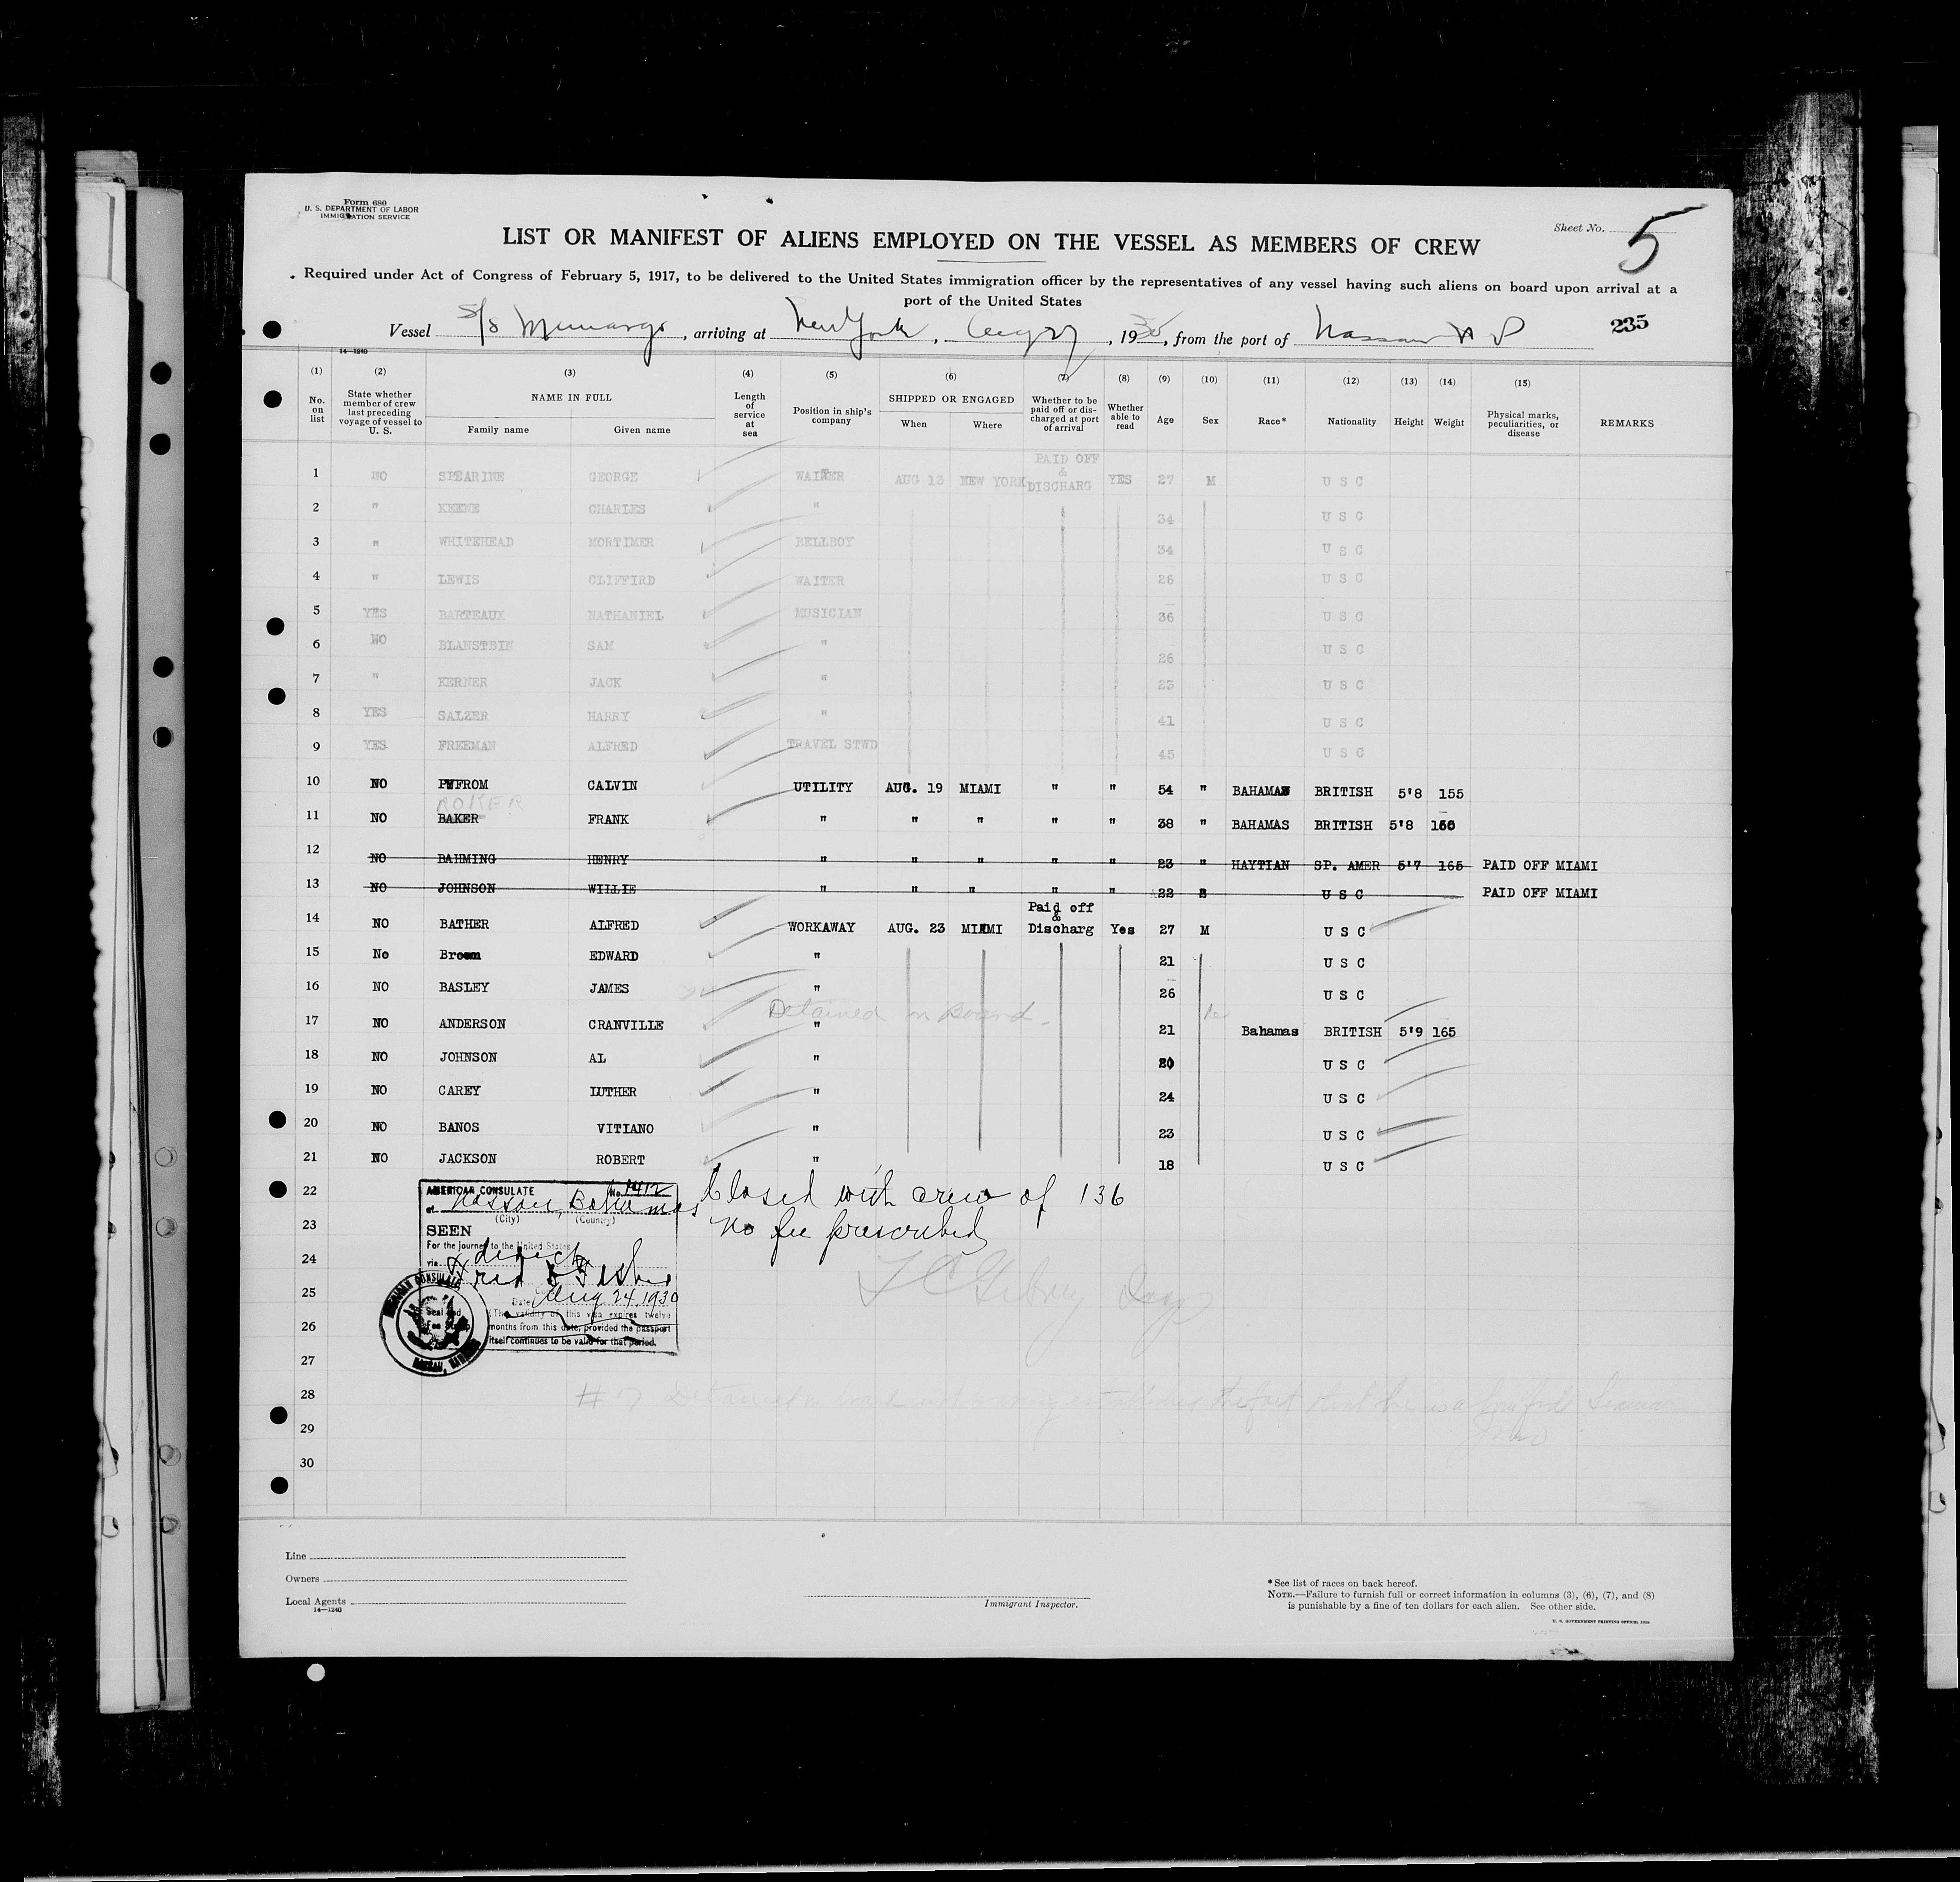 Form 680
U. S. DEPARTMENT OF LABOR
IMMIGRATION SERVICE
Sheet No. 5
LIST OR MANIFEST OF ALIENS EMPLOYED ON THE VESSEL AS MEMBERS OF CREW
Required under Act of Congress of February 5, 1917, to be delivered to the United States immigration officer by the representatives of any vessel having such aliens on board upon arrival at a
port of the United States
Vessel S/S Munargo, arriving at New York, Aug 27, 1930, from the port of Nassau N P 235
14—1240
(1) (2) (3) (4) (5) (6) (7) (8) (9) (10) (11) (12) (13) (14) (15)
No. on list State whether member of crew last preceding voyage of vessel to U. S. NAME IN FULL Family name Given name Length of service at sea Position in ship's company SHIPPED OR ENGAGED When Where Whether to be paid off or discharged at port of arrival Whether able to read Age Sex Race* Nationality Height Weight Physical marks, peculiarities, or disease REMARKS
1 NO SPEARINE GEORGE WAITER AUG 13 NEW YORK PAID OFF & DISCHARG YES 27 M U S C
2 " KEENE CHARLES " 34 U S C
3 " WHITEHEAD MORTIMER BELLBOY 34 U S C
4 " LEWIS CLIFFIRD WAITER 26 U S C
5 YES BARTEAUX NATHANIEL MUSICIAN 36 U S C
6 NO BLANSTEIN SAM " 26 U S C
7 " KERNER JACK " 23 U S C
8 YES SALZER HARRY " 41 U S C
9 YES FREEMAN ALFRED TRAVEL STWD 45 U S C
10 NO PYFROM CALVIN UTILITY AUG. 19 MIAMI " " 54 " BAHAMAS BRITISH 5'8 155
ROKER
11 NO BAKER FRANK " " " " " 38 " BAHAMAS BRITISH 5'8 160
12 NO BAHMING HENRY " " " " " 23 " HAYTIAN SP. AMER 5'7 165 PAID OFF MIAMI
13 NO JOHNSON WILLIE " " " " " 22 U S C PAID OFF MIAMI
14 NO BATHER ALFRED WORKAWAY AUG. 23 MIAMI Paid off & Discharg Yes 27 M U S C
15 No EDWARD " 21 U S C
16 NO BASLEY JAMES " 26 U S C
Detained on Board.
17 NO ANDERSON CRANVILLE " 21 Bahamas BRITISH 5'9 165
18 NO JOHNSON AL " 20 U S C
19 NO CAREY LUTHER " 24 U S C
20 NO BANOS VITIANO " 23 U S C
21 NO JACKSON ROBERT " 18 U S C
22 Closed with crew of 136
23 No fee prescribed
24
25
26
27
28
29
30
AMERICAN CONSULATE No. 1412
at Nassau, Bahamas
(City) (Country)
SEEN
For the journey to the United States
via direct
Date Aug 24, 1930
(The validity of this visa expires twelve
months from this date, provided the passport
itself continues to be valid for that period.
AMERICAN CONSULATE
Seal and
Fee Stamp
Line
Owners
Local Agents
14—1240
Immigrant Inspector.
*See list of races on back hereof.
NOTE.—Failure to furnish full or correct information in columns (3), (6), (7), and (8)
is punishable by a fine of ten dollars for each alien. See other side.